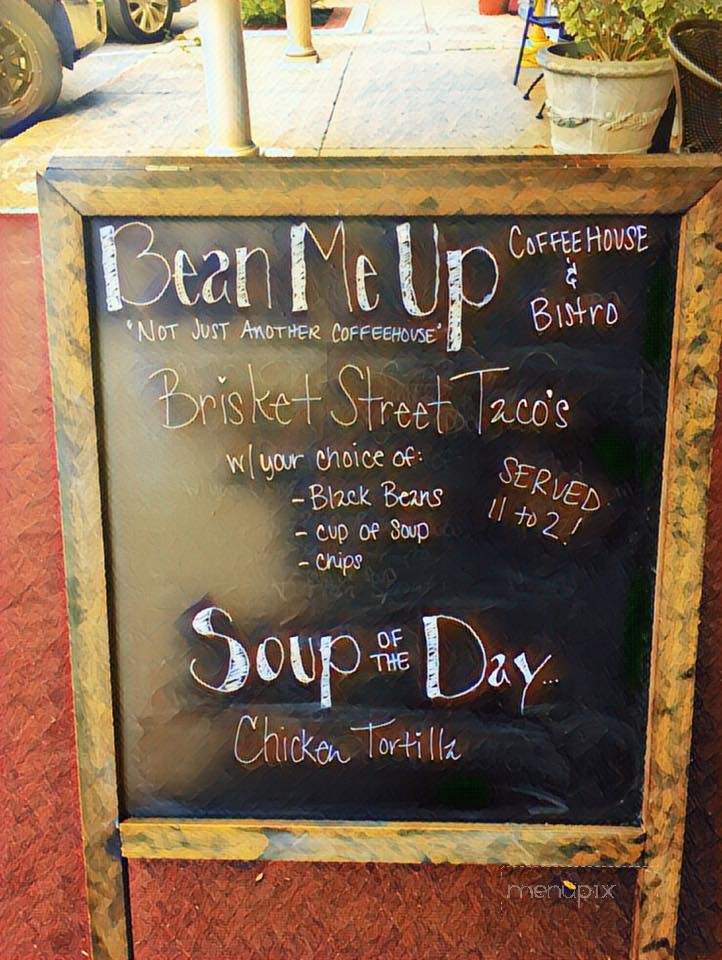 Bean Me Up
COFFEEHOUSE
&
BistrO
"NOT JUST ANOTHER COFFEEHOUSE"
Brisket Street Taco's
w/your choice of:
- Black Beans
- cup of soup
- chips
SERVED
11 to 2!
Soup OF THE Day...
Chicken Tortilla
menupix